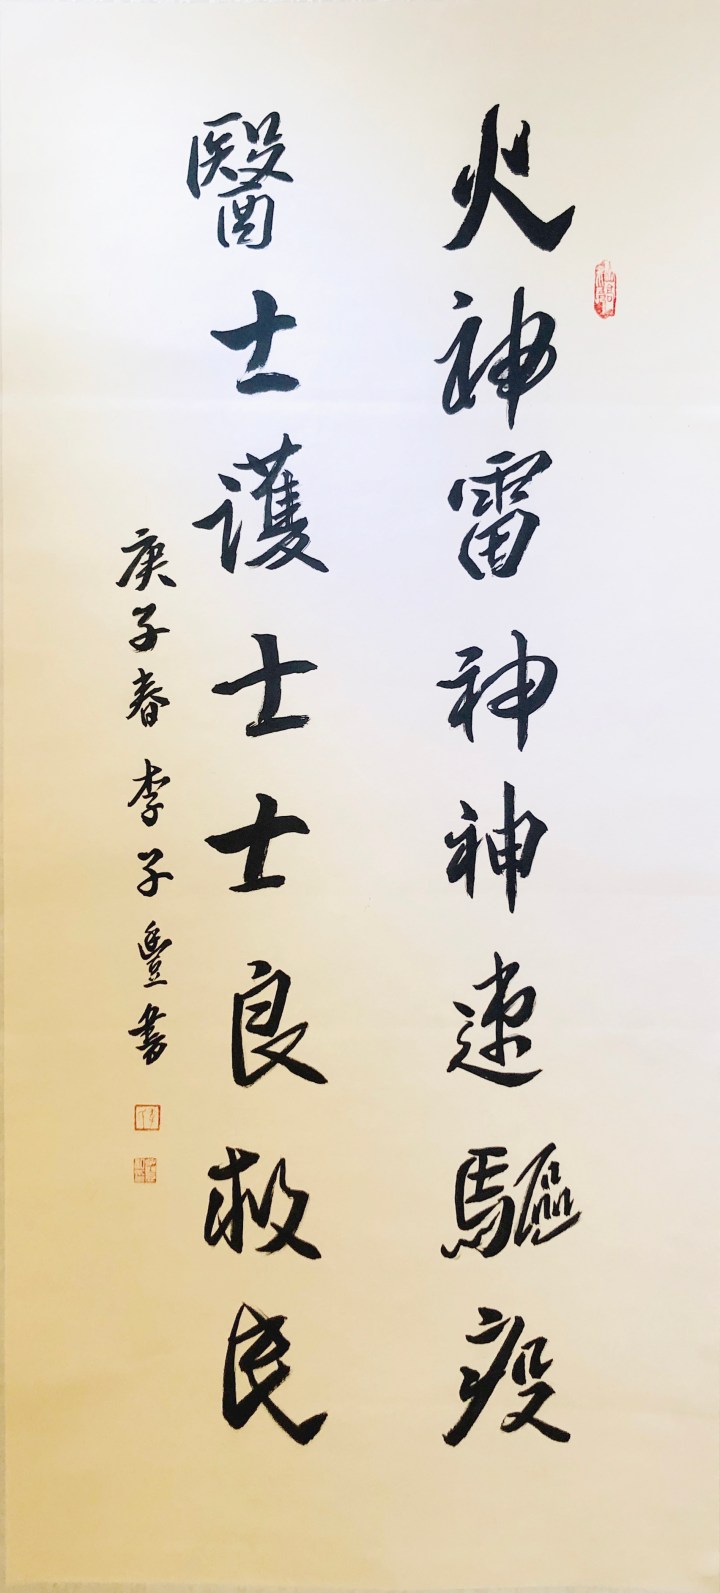 火神雷神神速驅疫
醫士護士士良救民
庚子春李子豐書